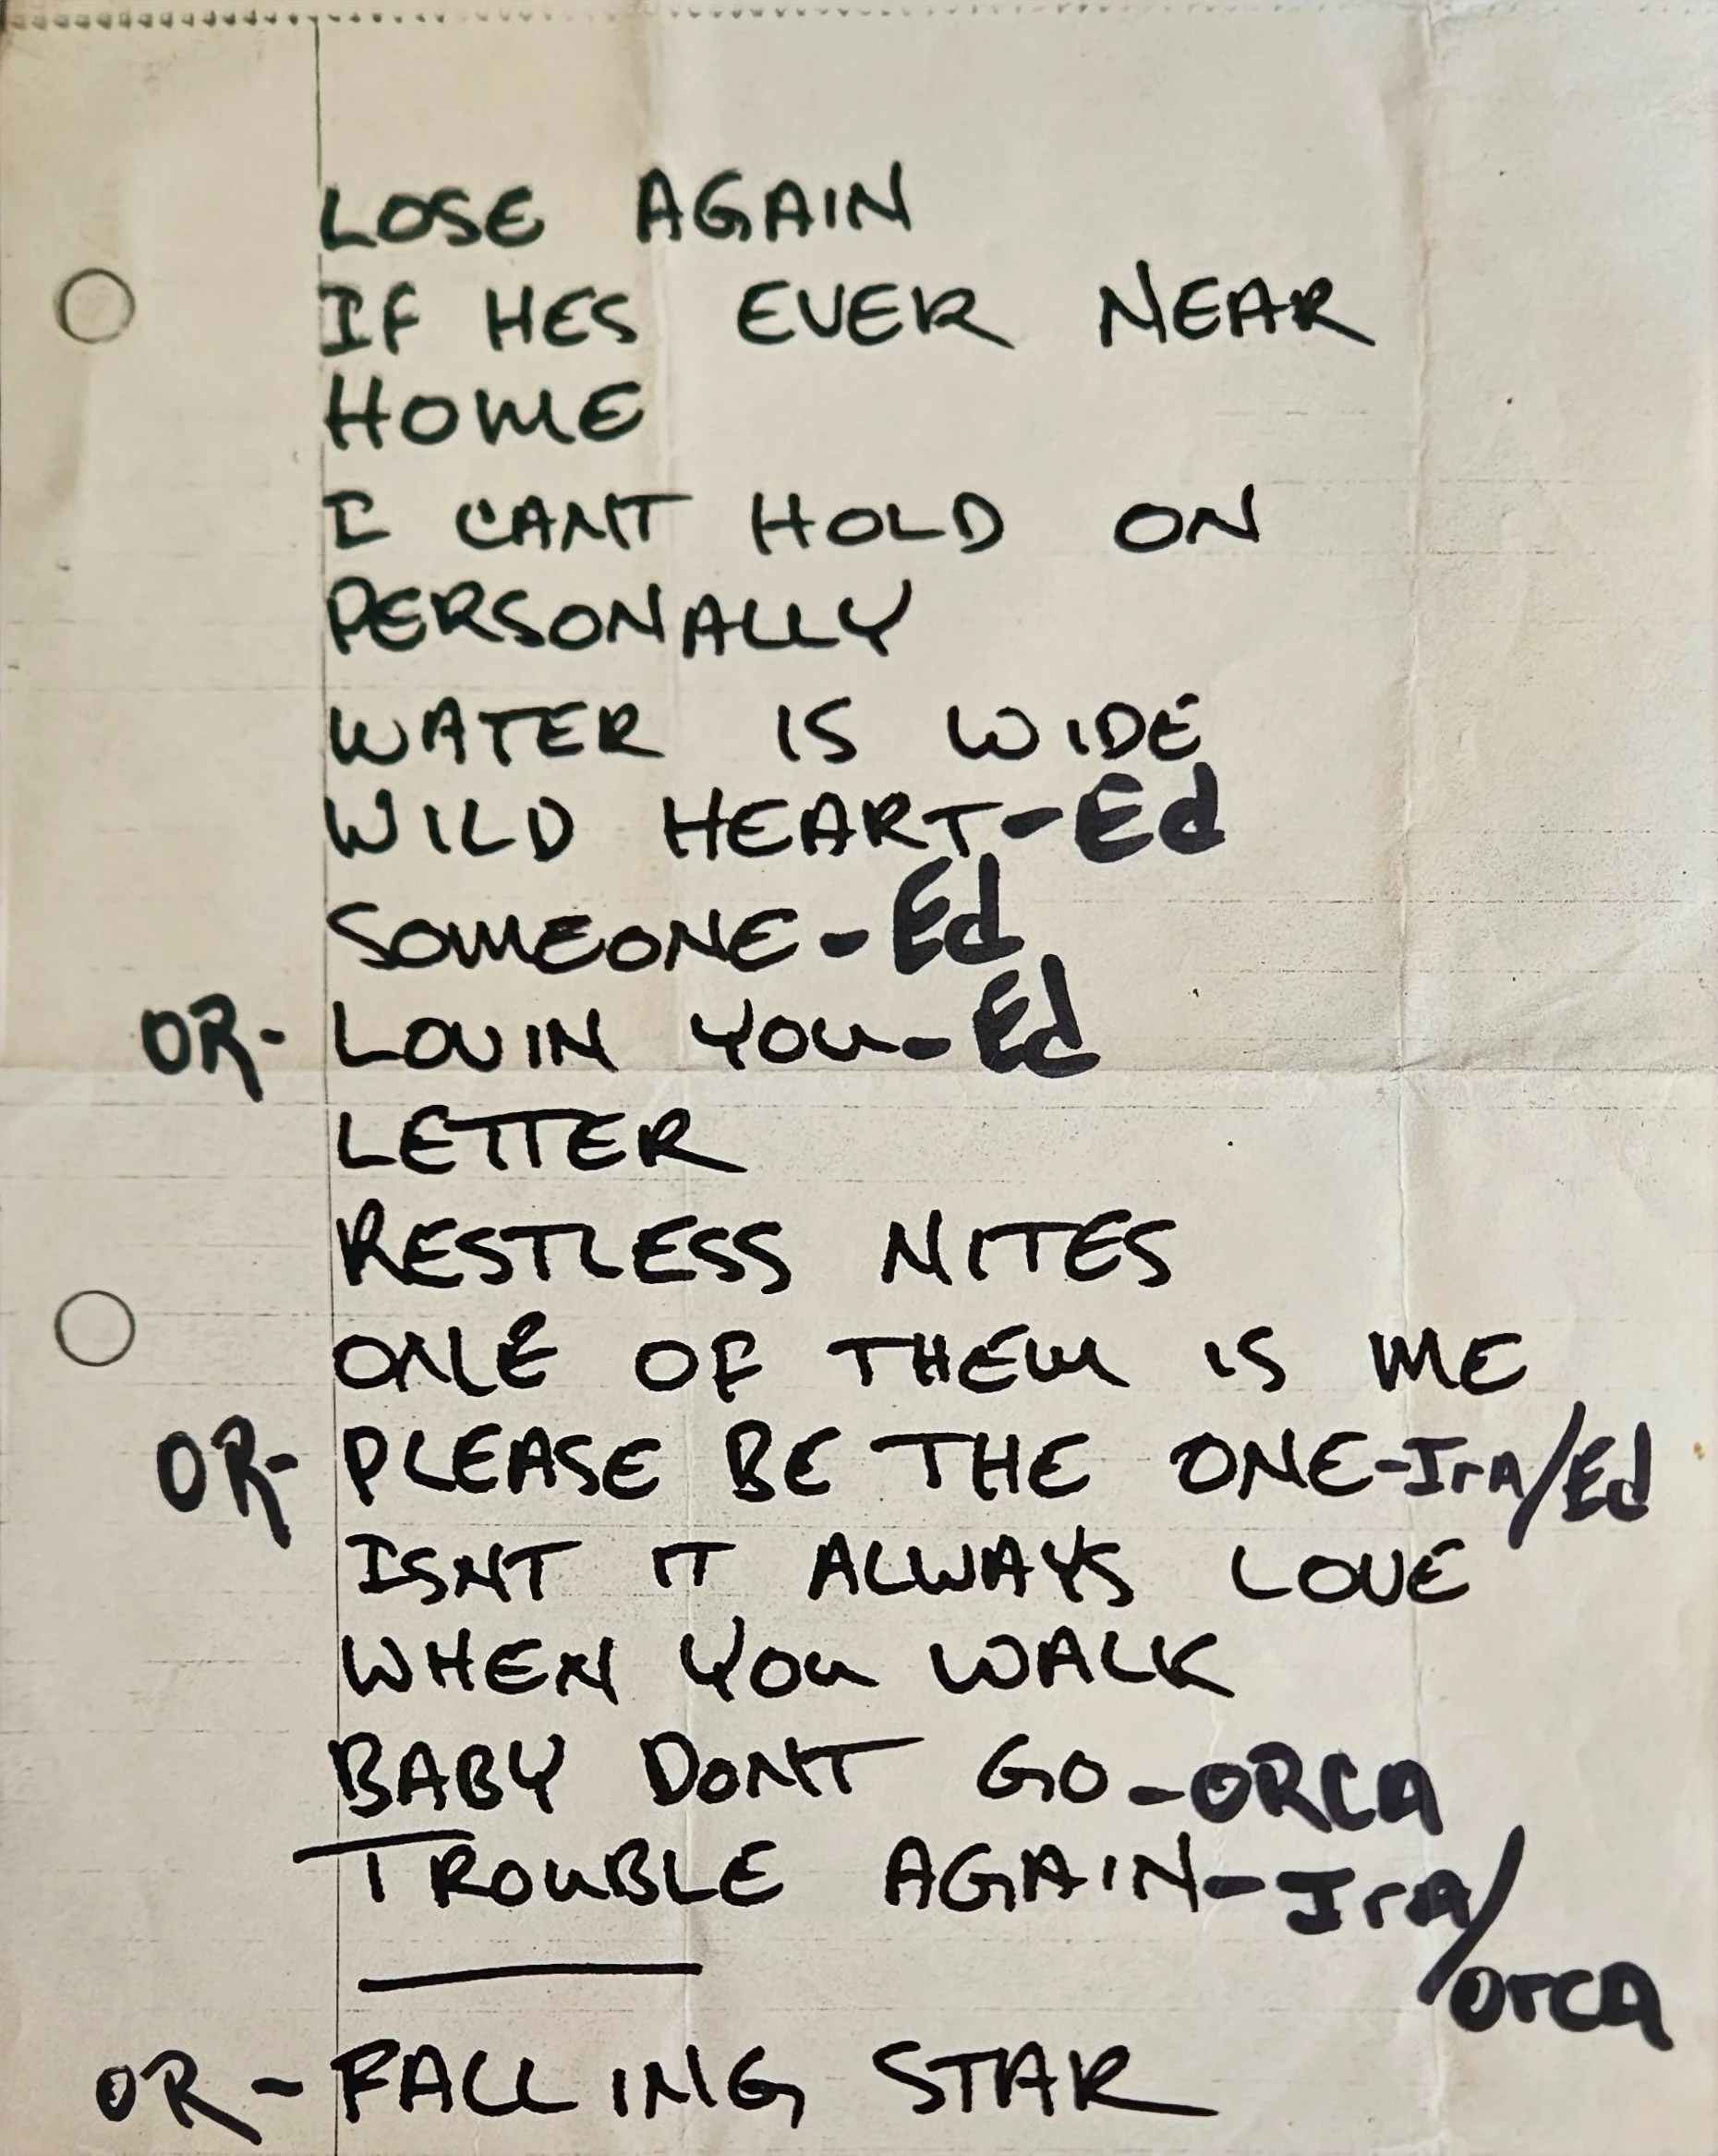 LOSE AGAIN
IF HES EVER NEAR
HOME
I CANT HOLD ON
PERSONALLY
WATER IS WIDE
WILD HEART-Ed
SOMEONE-Ed
OR- LOVIN YOU-Ed
LETTER
RESTLESS NITES
ONE OF THEM IS ME
OR- PLEASE BE THE ONE-IrA/Ed
ISNT IT ALWAYS LOVE
WHEN YOU WALK
BABY DONT GO-ORCA
TROUBLE AGAIN-IrA/
OrCA
OR- FALLING STAR